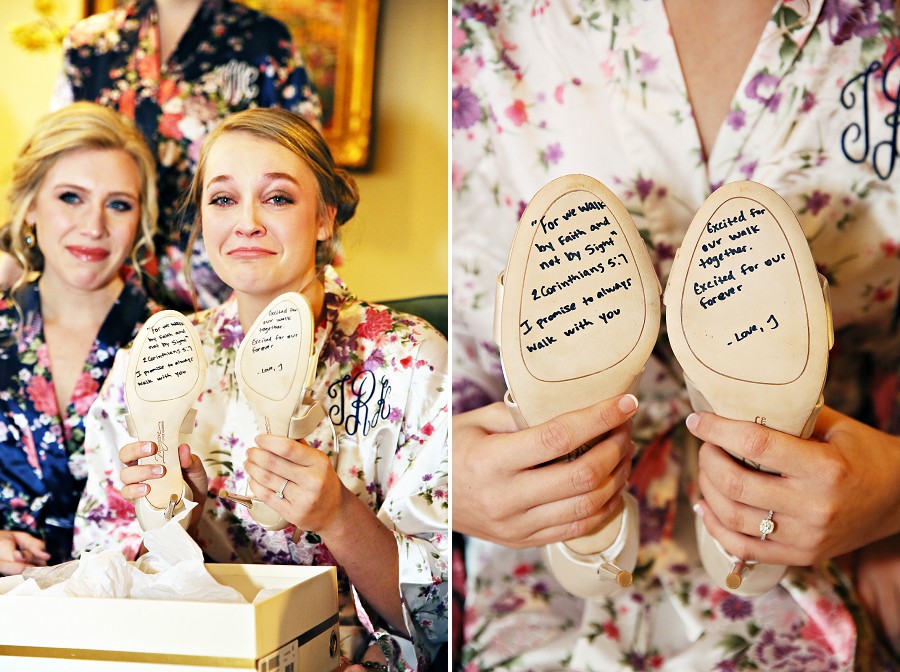 "For we walk
by faith and
not by sight"
2 Corinthians 5:7
I promise to always
walk with you
Excited for
our walk
together.
Excited for our
forever
-Love, J
TRK
"For we walk
by faith and
not by sight"
2 Corinthians 5:7
I promise to always
walk with you
Excited for
our walk
together.
Excited for our
forever
-Love, J